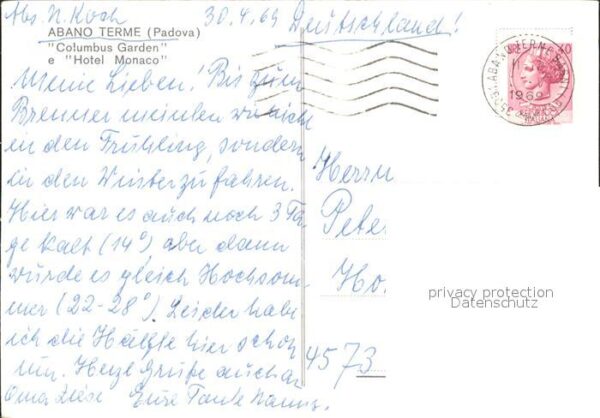 Abs. N. Koch 30.4.69 Deutschland!
ABANO TERME (Padova)
"Columbus Garden"
e "Hotel Monaco"
Meine Lieben! Bis zum
Brenner meinten wir nicht
in den Frühling, sondern
in den Winter zu fahren.
Hier war es auch noch 3 Ta-
ge kalt (14°) aber dann
wurde es gleich Hochsom-
mer (22-28°). Leider habe
ich die Hälfte hier schon
um. Herzl. Grüße auch an
Oma Liese Eure Tante
Herrn
Pete
Ho
4573
40
ABANO TERME
1969
privacy protection
Datenschutz